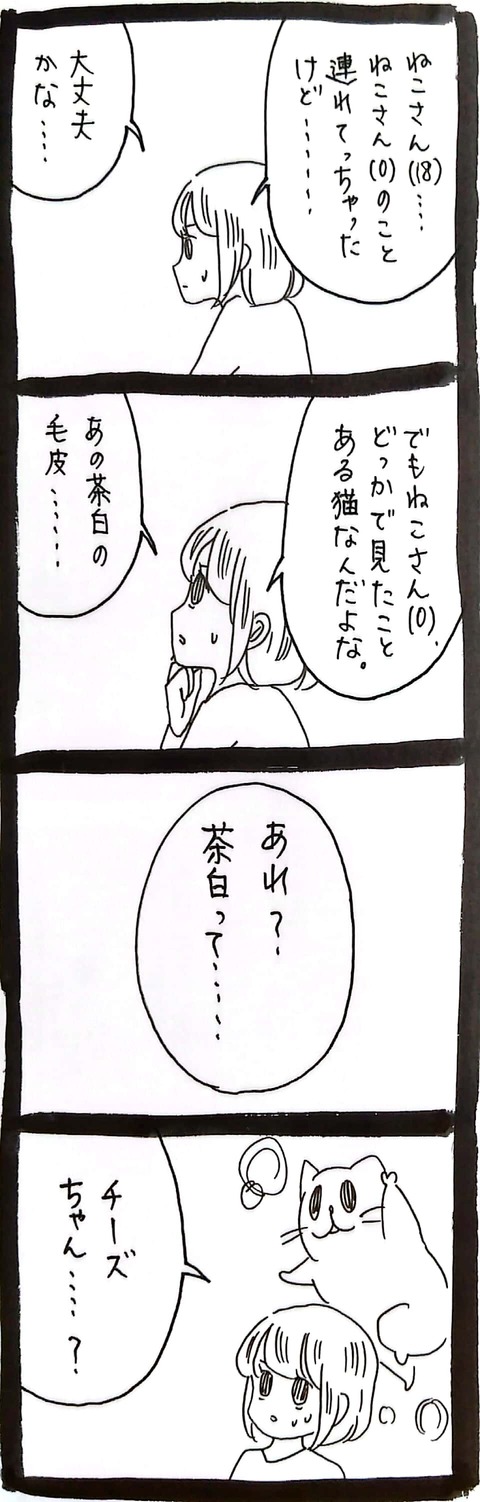 ねこさん(18)‥‥
ねこさん(0)のこと
連れてっちゃった
けど‥‥‥‥
大丈夫
かな‥‥
でもねこさん(0)、
どっかで見たこと
ある猫なんだよな。
あの茶白の
毛皮‥‥‥
あれ?
茶白って‥‥‥
チーズ
ちゃん‥‥?